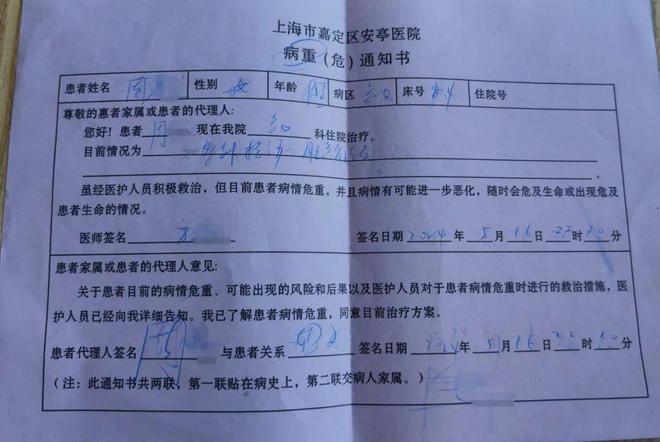 上海市嘉定区安亭医院
病重(危)通知书
患者姓名 周 性别 女 年龄 病区 床号 住院号
尊敬的患者家属或患者的代理人：
您好！患者 周 现在我院 科住院治疗。
目前情况为
虽经医护人员积极救治，但目前患者病情危重，并且病情有可能进一步恶化，随时会危及生命或出现危及
患者生命的情况。
医师签名 签名日期 2024 年 5 月 16 日 22 时 20 分
患者家属或患者的代理人意见：
关于患者目前的病情危重、可能出现的风险和后果以及医护人员对于患者病情危重时进行的救治措施，医
护人员已经向我详细告知。我已了解患者病情危重，同意目前治疗方案。
患者代理人签名 周 与患者关系 签名日期 2024 年 5 月 16 日 22 时 20 分
(注：此通知书共两联，第一联贴在病史上，第二联交病人家属。)